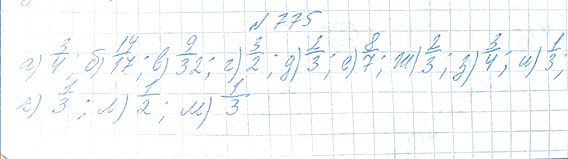 № 775
а) 3/4; б) 14/17; в) 9/32; г) 3/2; д) 1/3; е) 8/7; ж) 2/3; з) 3/4; и) 1/3;
к) 1/3; л) 1/2; м) 1/3